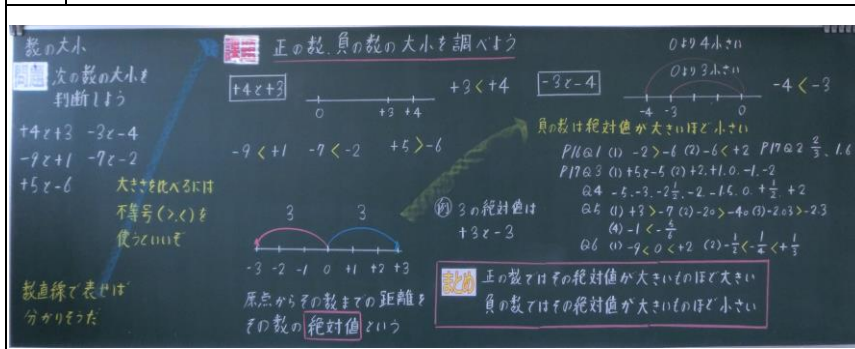 数の大小
問題 次の数の大小を
判断しよう
+4と+3 -3と-4
-9と+1 -7と-2
+5と-6
大きさを比べるには
不等号(>,<)を
使うといいぞ
数直線で表せば
分かりそうだ
正の数、負の数の大小を調べよう
+4と+3
0 +3 +4
+3<+4
-9<+1 -7<-2 +5>-6
3 3
-3 -2 -1 0 +1 +2 +3
原点からその数までの距離を
その数の絶対値という
例 3の絶対値は
+3と-3
-3と-4
0より4小さい
0より3小さい
-4 -3 0
-4<-3
負の数は絶対値が大きいほど小さい
P16Q1 (1) -2>-6 (2) -6<+2 P17Q2 2/3、1.6
P17Q3 (1) +5と-5 (2) +2,+1.0.-1.-2
Q4 -5.-3.-2 1/2.-2.-1.5.0.+1/2.+2
Q5 (1) +3>-7 (2) -20>-40 (3) -2.03>-2.3
(4) -1<-5/6
Q6 (1) -9<0<+2 (2) -1/2<-1/4<+1/3
まとめ 正の数ではその絶対値が大きいものほど大きい
負の数ではその絶対値が大きいものほど小さい